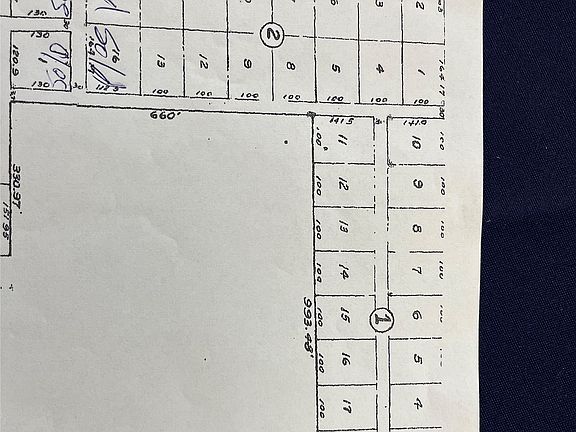 130
130
120.9
130
30
16
Sold
13
12
9
8
5
4
1
2
100
100
100
100
100
100
100
30
660'
141.5
141.9
330.97'
131.95
993.48'
11
12
13
14
15
16
17
100
100
100
100
100
100
100
10
9
8
7
6
5
4
100
100
100
100
100
1